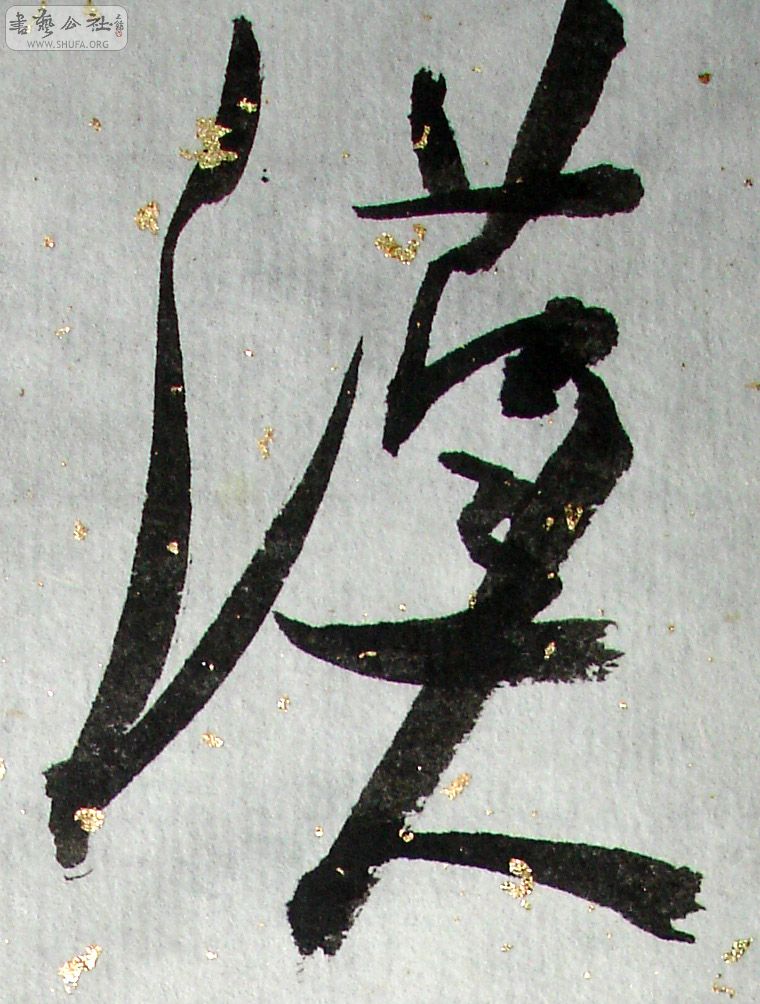 書藝公社
WWW.SHUFA.ORG
漠